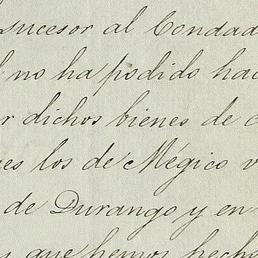 sucesor al Condad
no ha podido hac
r dichos bienes de c
es los de Mégico v
de Durango y en
que hemos hecho